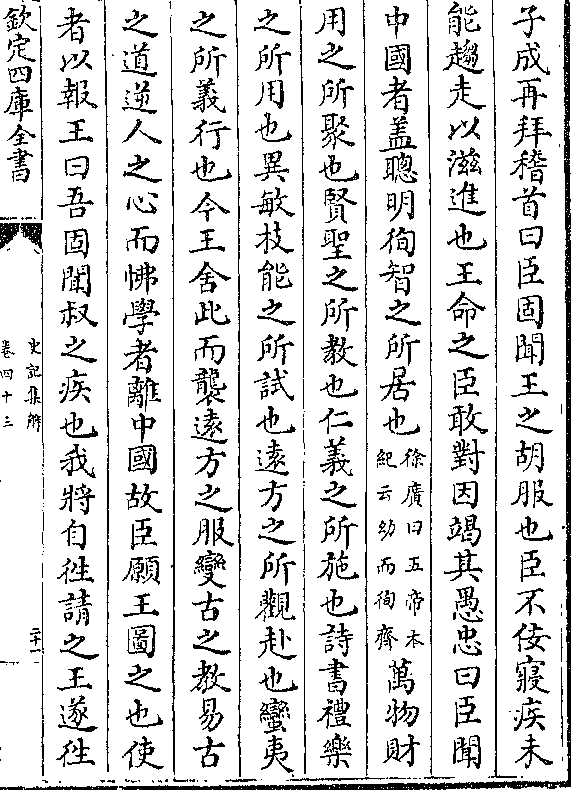 子成再拜稽首曰臣固聞王之胡服也臣不佞寢疾未
能趨走以滋進也王命之臣敢對因竭其愚忠曰臣聞
中國者盖聰明徇智之所居也徐廣曰五帝本紀云幼而徇齊萬物財
用之所聚也賢聖之所教也仁義之所施也詩書禮樂
之所用也異敏枝能之所試也遠方之所觀赴也蠻夷
之所義行也今王舍此而襲遠方之服變古之教易古
之道逆人之心而怫學者離中國故臣願王圖之也使
者以報王曰吾固聞叔之疾也我將自徃請之王遂徃
欽定四庫全書
史記集解
卷四十三
二十